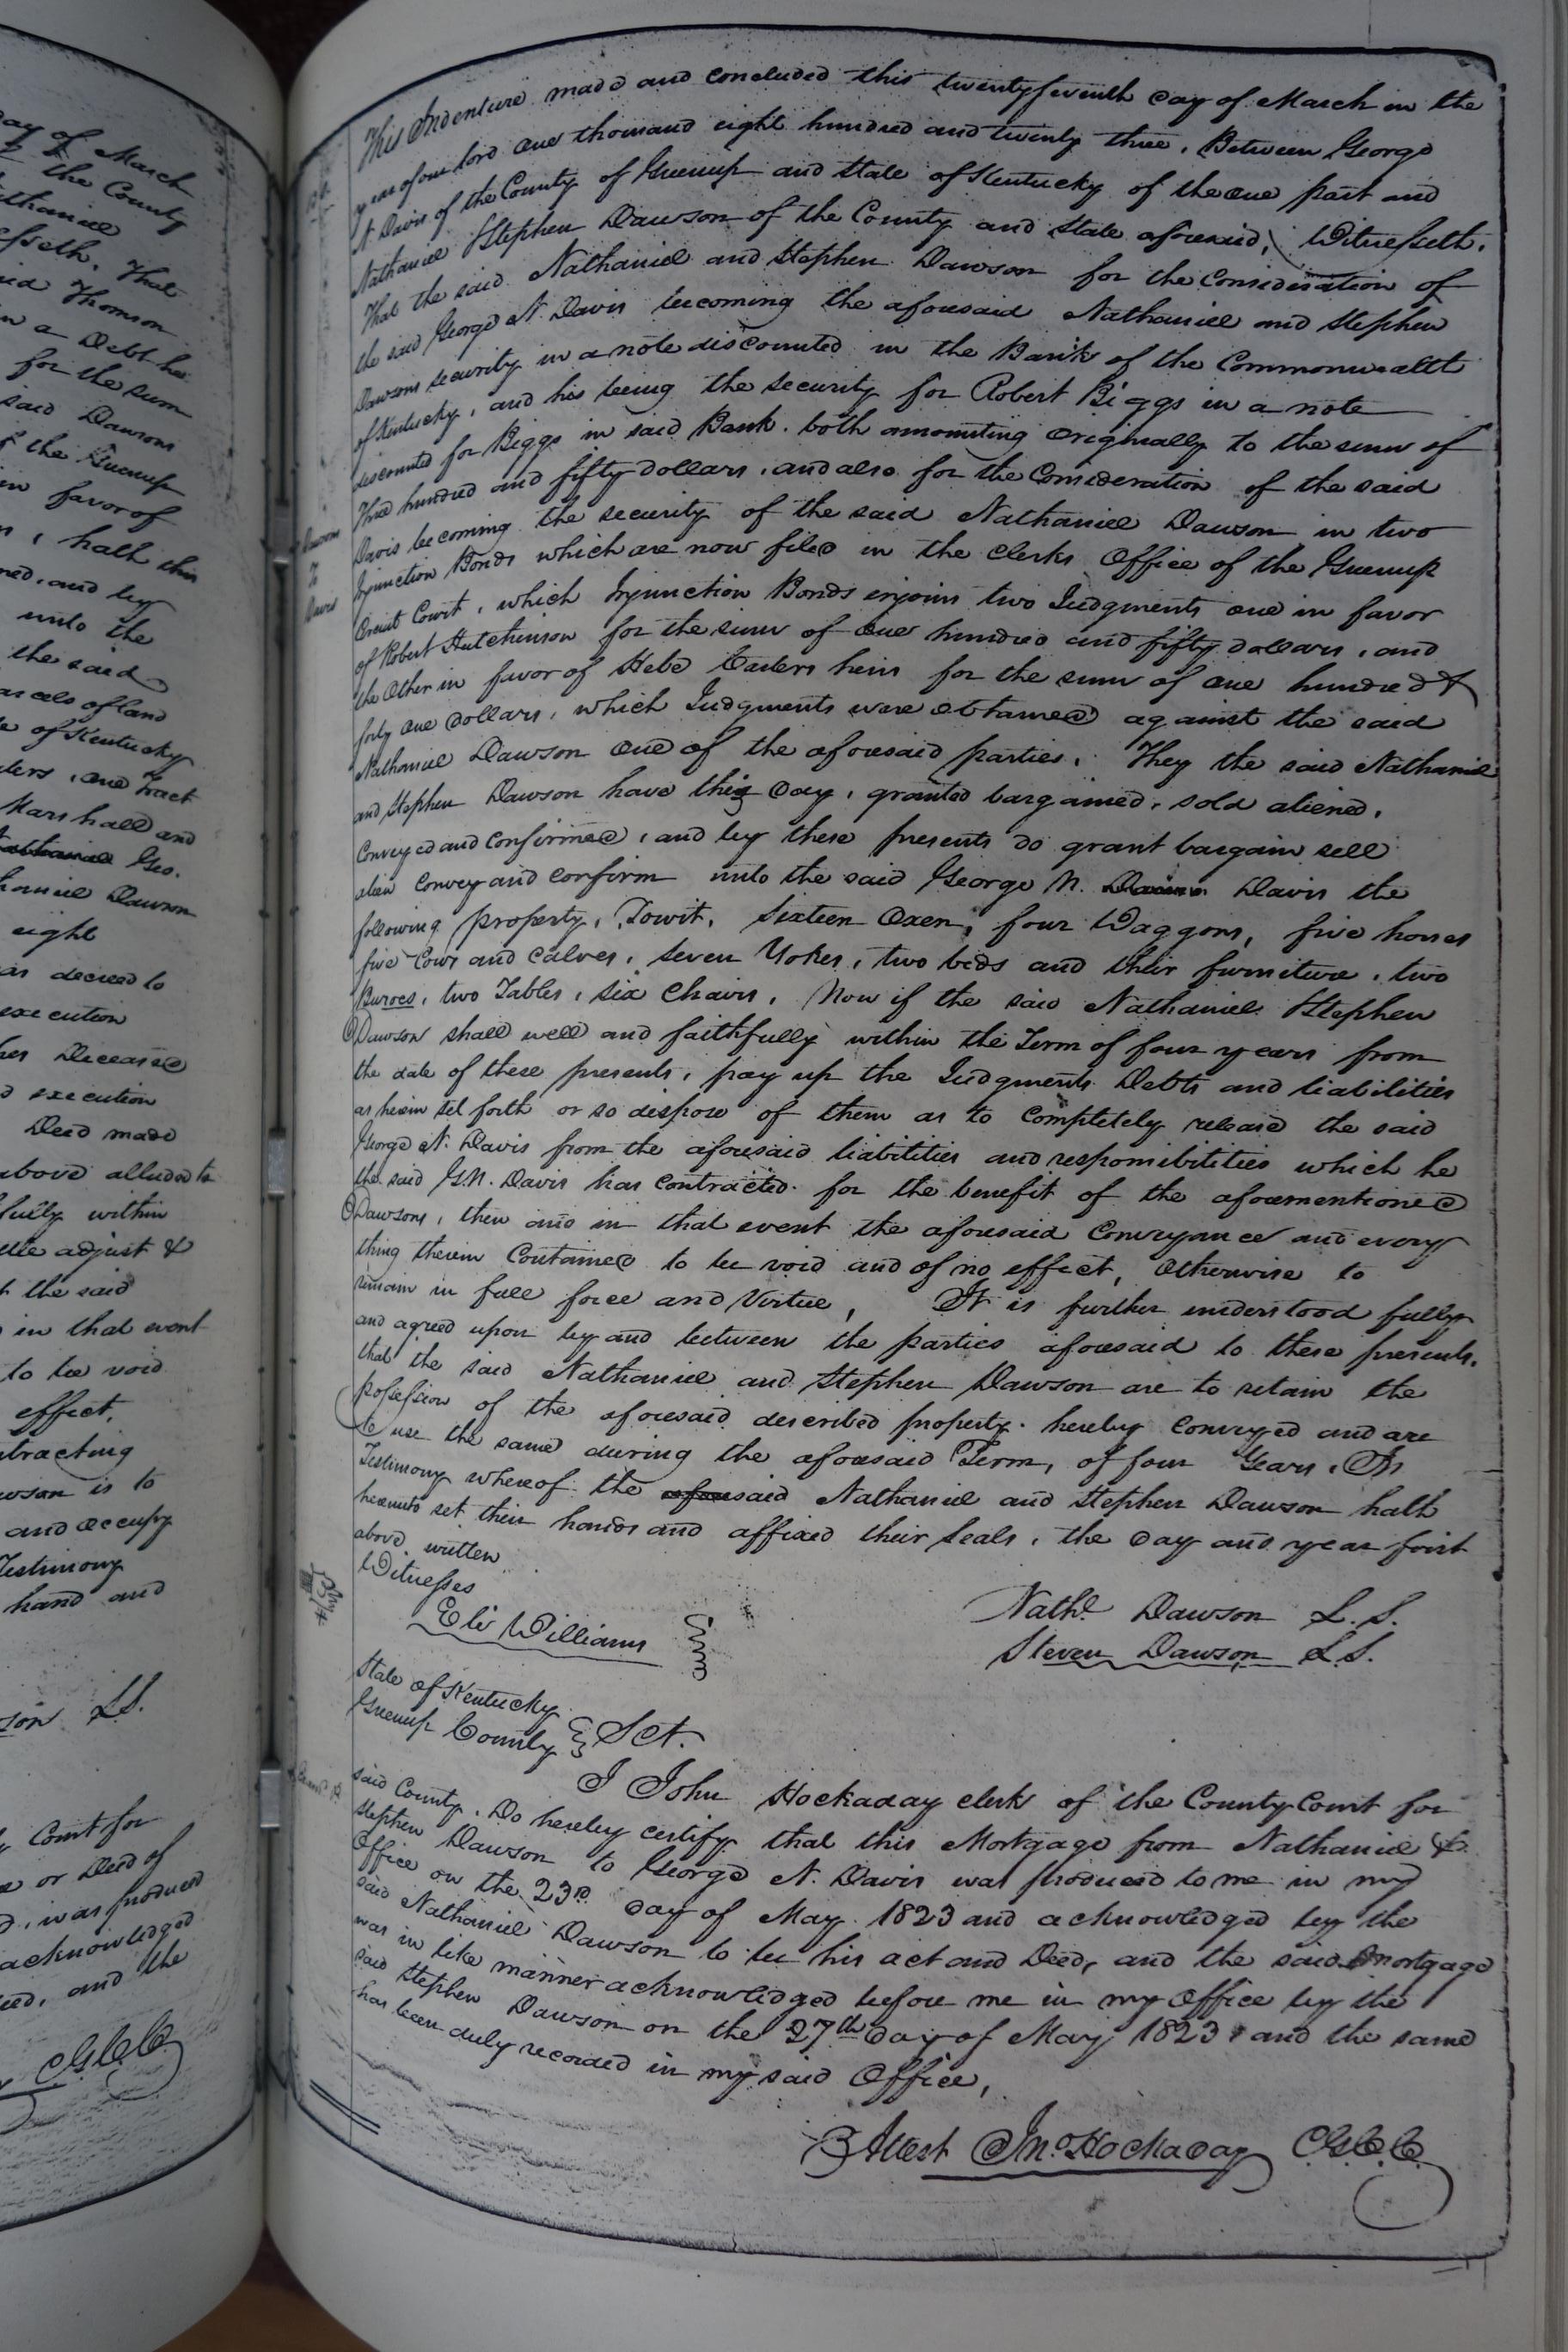 day of March
the County
thaniel
esseth. That
id Thomson
n a Debt he
for the sum
said Dawsons
of the Greenup
in favor of
hath this
ned, and by
unto the
the said
arcels of land
e of Kentucky
one Tract
Marshall and
Nathaniel Geo.
haniel Dawson
eight
as decreed to
execution
her Deceased
d execution
Deed made
above alluded to
fully within
ttle adjust &
t the said
in that event
to be void
effect.
tracting
wson is to
and occupy
Testimony
hand and
son L.S.
Court for
or Deed of
was produced
acknowledged
eed, and the
C.G.C.C.
This Indenture made and concluded this twenty seventh day of March in the
year of our lord one thousand eight hundred and twenty three. Between George
N. Davis of the County of Greenup and State of Kentucky of the one part and
Nathaniel & Stephen Dawson of the County and State aforesaid, Witnesseth.
That the said Nathaniel and Stephen Dawson for the Consideration of
the said George N. Davis becoming the aforesaid Nathaniel and Stephen
Dawsons security in a note discounted in the Bank of the Commonwealth
of Kentucky, and his being the security for Robert Biggs in a note
discounted for Biggs in said Bank. both amounting Originally to the sum of
Three hundred and fifty dollars. and also for the Consideration of the said
Davis becoming the security of the said Nathaniel Dawson in two
Injunction Bonds which are now filed in the Clerks Office of the Greenup
Circuit Court, which Injunction Bonds enjoins two Judgments one in favor
of Robert Hutchinson for the sum of One hundred and fifty dollars, and
the Other in favor of heirs for the sum of one hundred &
forty one dollars, which Judgments were obtained against the said
Nathaniel Dawson One of the aforesaid parties. They the said Nathaniel
and Stephen Dawson have this day, granted bargained, sold aliened,
Conveyed and Confirmed, and by these presents do grant bargain sell
alien Convey and Confirm unto the said George N. Davis the
following property, Towit, Sixteen Oxen, four Waggons, five horses
five Cows and Calves, seven Yokes, two beds and their furniture, two
Buroes, two Tables, six Chairs, Now if the said Nathaniel & Stephen
Dawson shall well and faithfully within the Term of four years from
the date of these presents, pay up the Judgments Debts and liabilities
as herein set forth or so dispose of them as to Completely release the said
George N. Davis from the aforesaid liabilities and responsibilities which he
the said G.N. Davis has Contracted for the benefit of the aforementioned
Dawsons, then and in that event the aforesaid Conveyance and every
thing therein Contained to be void and of no effect, Otherwise to
remain in full force and Virtue, It is further understood fully
and agreed upon by and between the parties aforesaid to these presents.
that the said Nathaniel and Stephen Dawson are to retain the
possession of the aforesaid described property. hereby Conveyed and are
to use the same during the aforesaid Term, of four Years. In
Testimony whereof the aforesaid Nathaniel and Stephen Dawson hath
hereunto set their hands and affixed their Seals, the day and year first
above written
Witnesses
Eli Williams
Nathl Dawson L.S.
Steven Dawson L.S.
State of Kentucky
Greenup County Sct.
I John Hockaday clerk of the County Court for
said County. Do hereby certify that this Mortgage from Nathaniel &
Stephen Dawson to George N. Davis was produced to me in my
Office on the 23rd day of May 1823 and acknowledged by the
said Nathaniel Dawson to be his act and Deed, and the said Mortgage
was in like manner acknowledged before me in my Office by the
said Stephen Dawson on the 27th day of May 1823 and the same
has been duly recorded in my said Office,
Attest Jno. Hockaday C.G.C.C.
Dawson
To
Davis